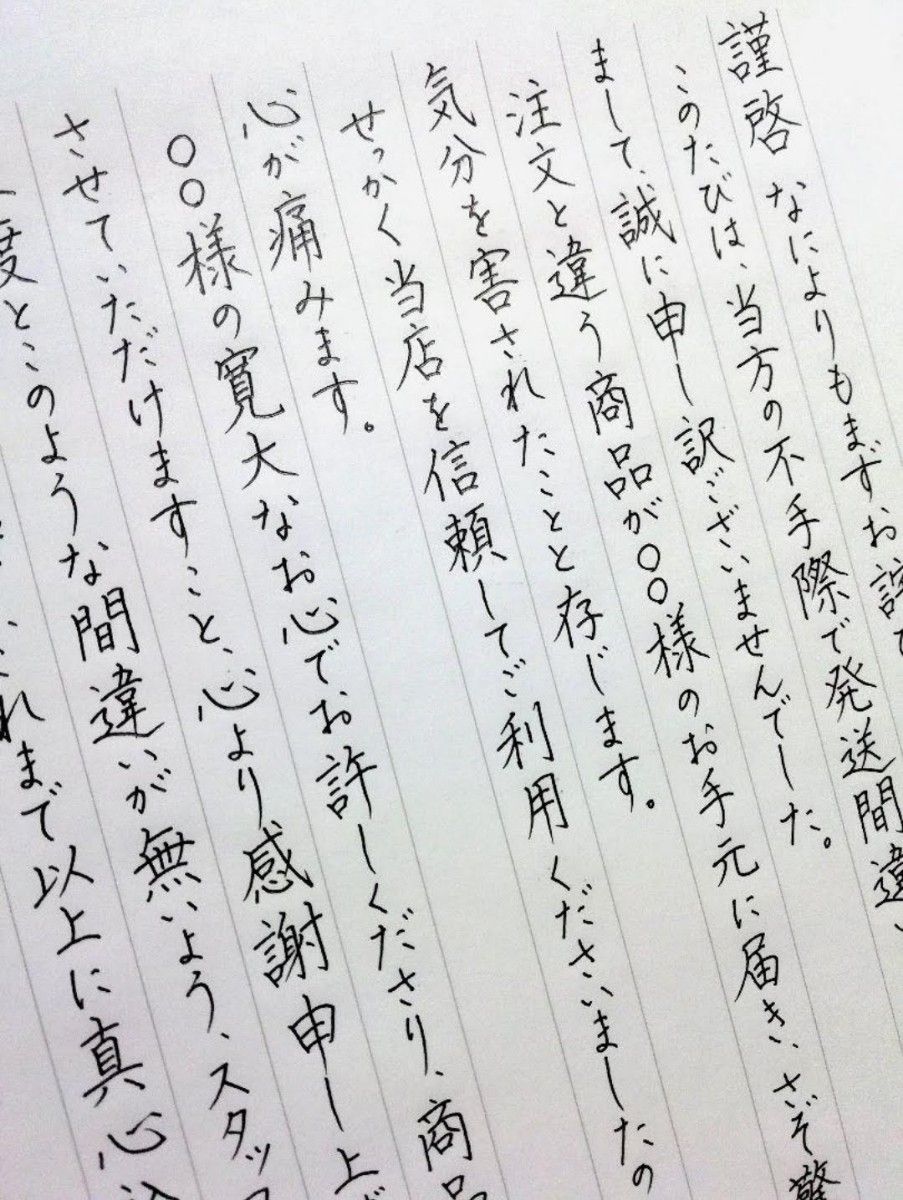 謹啓 なによりもまずお詫
このたびは、当方の不手際で発送間違い
まして、誠に申し訳ございませんでした。
注文と違う商品が〇〇様のお手元に届き、さぞ驚
気分を害されたことと存じます。
せっかく当店を信頼してご利用くださいましたの
心が痛みます。
〇〇様の寛大なお心でお許しくださり、商品
させていただけますこと、心より感謝申し上
度とこのような間違いが無いよう、スタッ
れまで以上に真心